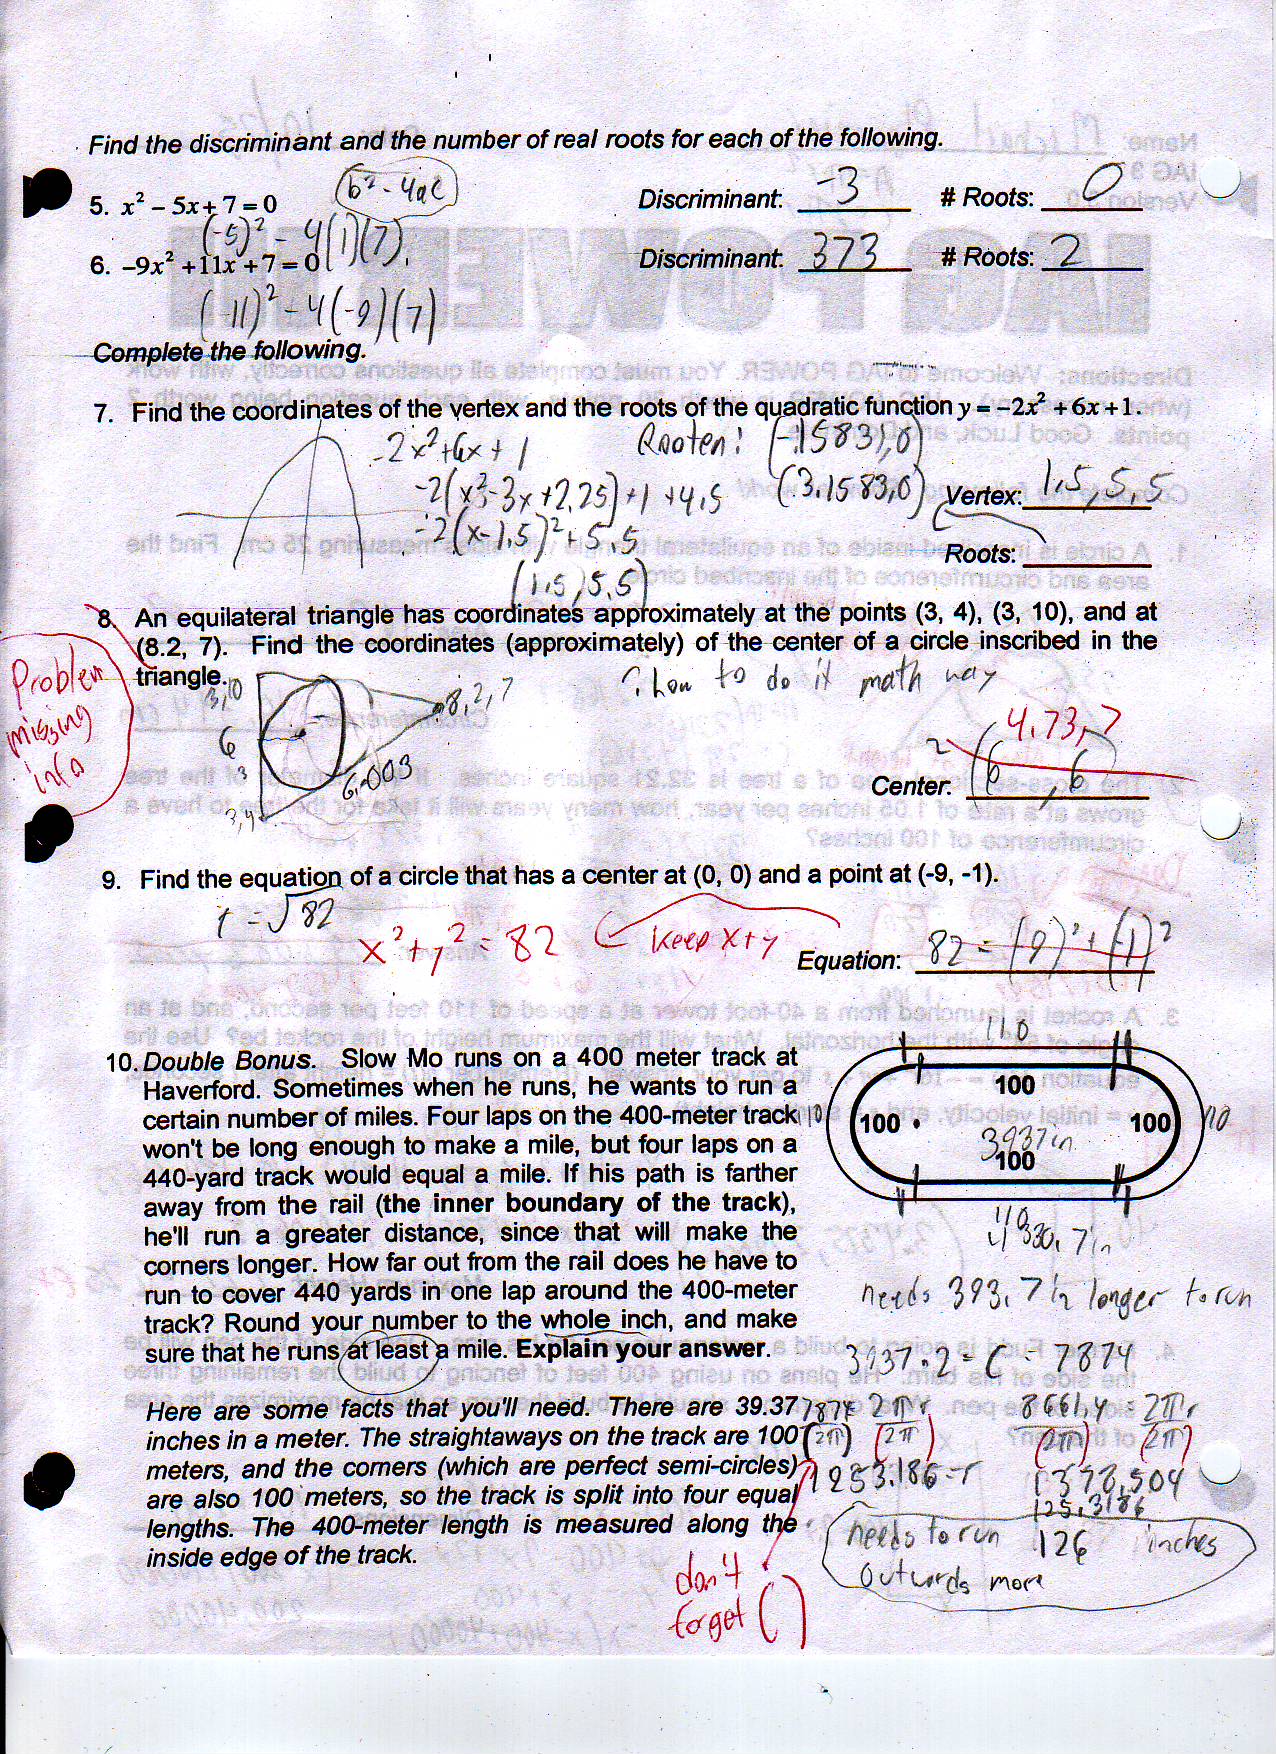 Find the discriminant and the number of real roots for each of the following.
5. x² – 5x + 7 = 0
b² - 4ac
Discriminant: -3 # Roots: 0
(-5)² - 4(1)(7)
6. –9x² + 11x + 7 = 0
Discriminant: 373 # Roots: 2
(-11)² - 4(-9)(7)
Complete the following.
7. Find the coordinates of the vertex and the roots of the quadratic function y = –2x² + 6x + 1.
-2x² + 6x + 1
Rooten: (-.1583, 0)
-2(x² - 3x + 2.25) + 1 + 4.5
(3.1583, 0)
Vertex: 1.5, 5.5
-2(x - 1.5)² + 5.5
Roots:
(1.5, 5.5)
8. An equilateral triangle has coordinates approximately at the points (3, 4), (3, 10), and at
(8.2, 7). Find the coordinates (approximately) of the center of a circle inscribed in the
triangle.
Problem
missing
info
? how to do it math way
3, 10
8.2, 7
6
3
6.003
3, 4
4.73, 7
Center: (6, 6)
9. Find the equation of a circle that has a center at (0, 0) and a point at (-9, -1).
r = √82
x² + y² = 82
keep x + y
Equation: 82 = (9)² + (1)²
10. Double Bonus. Slow Mo runs on a 400 meter track at
Haverford. Sometimes when he runs, he wants to run a
certain number of miles. Four laps on the 400-meter track
won't be long enough to make a mile, but four laps on a
440-yard track would equal a mile. If his path is farther
away from the rail (the inner boundary of the track),
he'll run a greater distance, since that will make the
corners longer. How far out from the rail does he have to
run to cover 440 yards in one lap around the 400-meter
track? Round your number to the whole inch, and make
sure that he runs at least a mile. Explain your answer.
110
100
100
100
110
3937 in
100
110
4330.7 in
needs 393.7 in longer to run
3937 · 2 = C = 7874
Here are some facts that you'll need. There are 39.37
inches in a meter. The straightaways on the track are 100
meters, and the corners (which are perfect semi-circles)
are also 100 meters, so the track is split into four equal
lengths. The 400-meter length is measured along the
inside edge of the track.
7874 = 2πr
(2π) (2π)
1253.186 = r
8661.4 = 2πr
(2π) (2π)
1378.504
125.3186
needs to run 126 inches
outwards more
don't
forget ( )